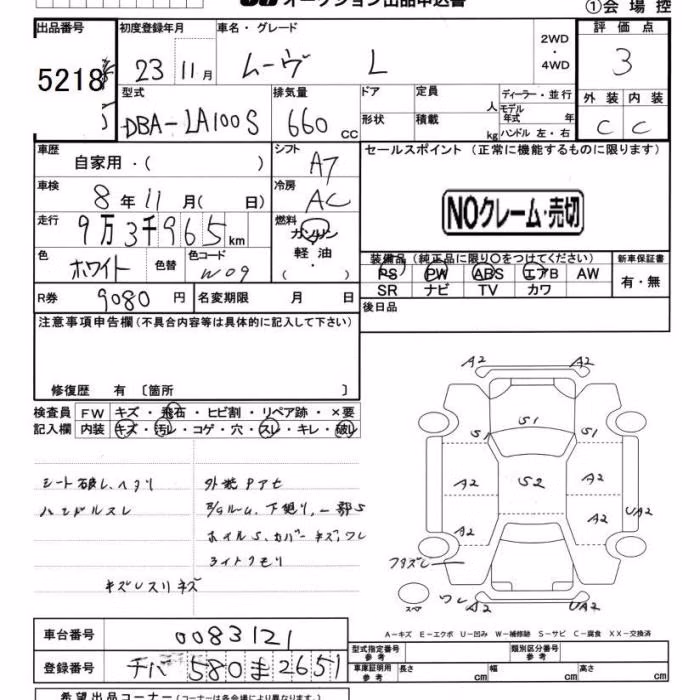 オークション出品申込書
①会場控
出品番号 初度登録年月 車名・グレード 評価点
5218 23 11月 ムーヴ L 2WD・4WD 3
型式 排気量 ドア 定員 人 ディーラー・並行 外装 内装
DBA-LA100S 660 cc 形状 積載 kg モデル年式 年 ハンドル 左・右 C C
車歴 自家用・( ) シフト AT セールスポイント (正常に機能するものに限ります)
車検 8年11月( 日) 冷房 AC
NOクレーム・売切
走行 9万3千965km 燃料 ガソリン・軽油・( )
装備品(純正品に限り○をつけてください) 新車保証書
色 ホワイト 色替 色コード W09
PS PW ABS エアB AW 有・無
SR ナビ TV カワ
R券 9080円 名変期限 月 日 後日品
注意事項申告欄(不具合内容等は具体的に記入して下さい)
修復歴 有 〔箇所 〕
検査員記入欄 FW キズ・飛石・ヒビ割・リペア跡・×要
内装 キズ・汚レ・コゲ・穴・スレ・キレ・破レ
A2 A2
S1 S1 S1
シート破レ、ヘタリ 外装PアセA2 S2 A2
ハンドルスレ B/Gルーム、下廻リ、一部S
A2 A2 UA2
ホイルS、カバーキズ、ワレ A2
ライトクモリ
キズレスリキズ
スペア ワレ A2 UA2
A-キズ E-エクボ U-凹み W-補修跡 S-サビ C-腐食 XX-交換済
車台番号 0083121
型式指定番号 参考 類別区分番号 参考
登録番号 チバ 580 ま 2651
車庫証明用 参考 長さ cm 幅 cm 高さ cm
希望出品コーナー(コーナーは各会場により異なります。)